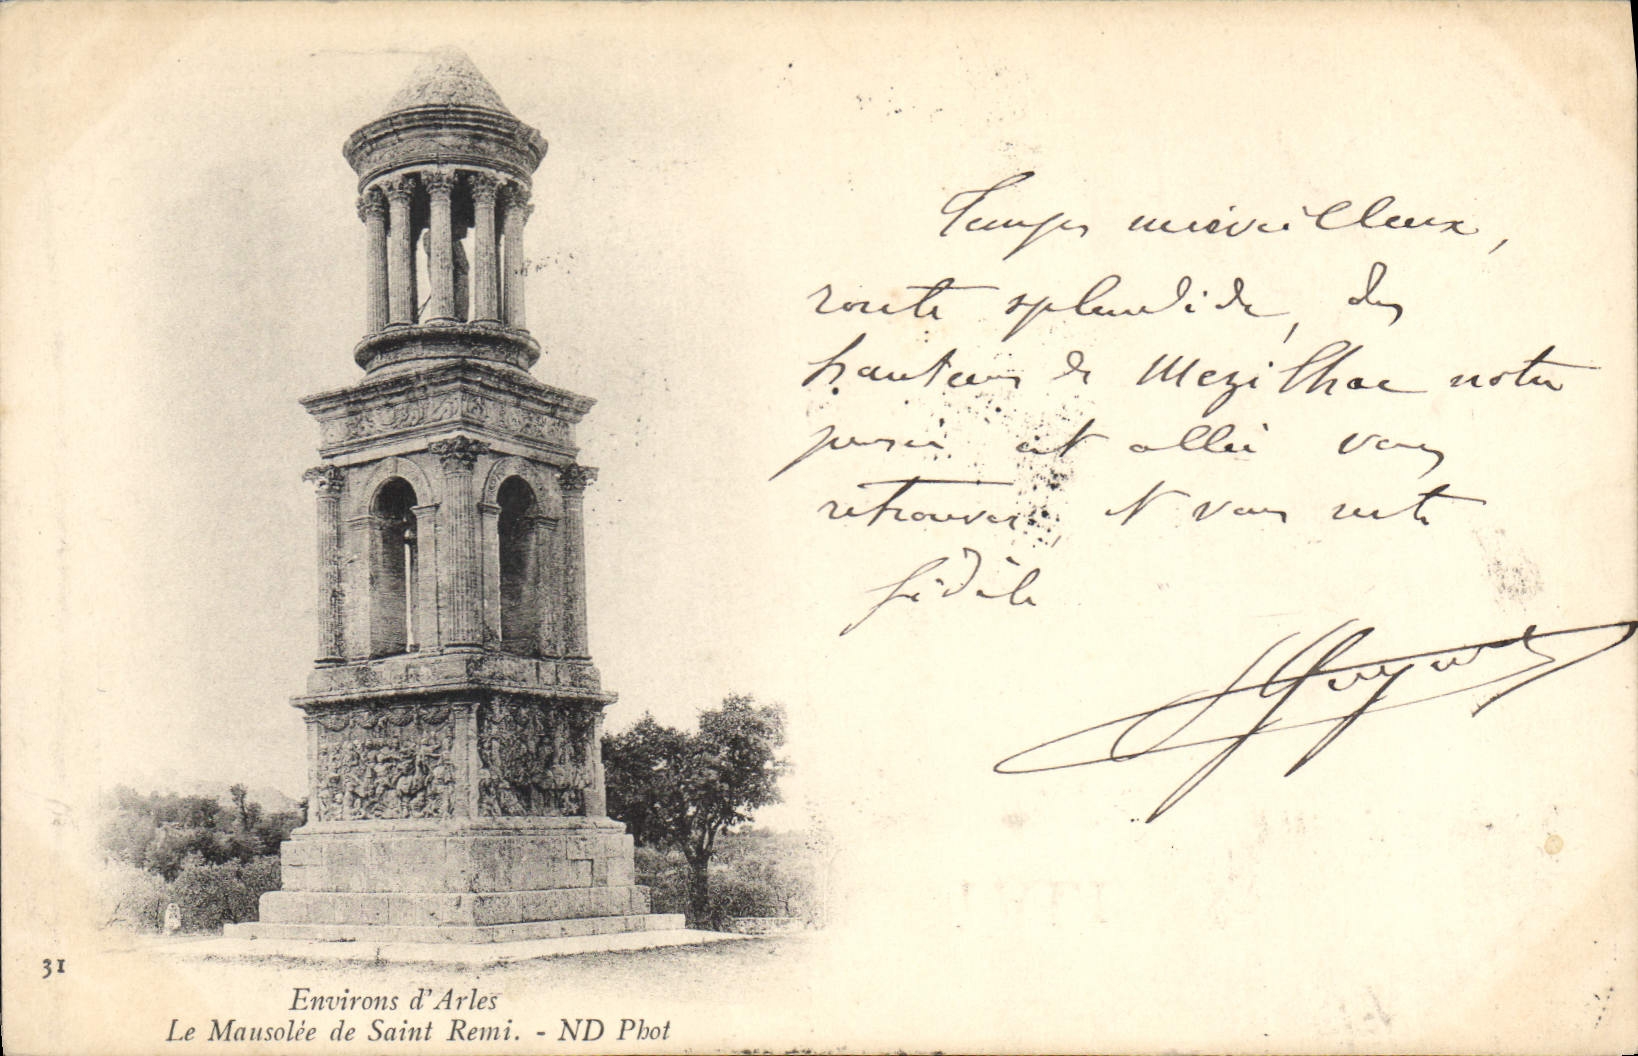 Temps merveilleux,
route splendide, des
hauteurs de Mezilhac notre
pensée est allée vous
retrouver et vous reste
fidèle
31
Environs d'Arles
Le Mausolée de Saint Remi. - ND Phot